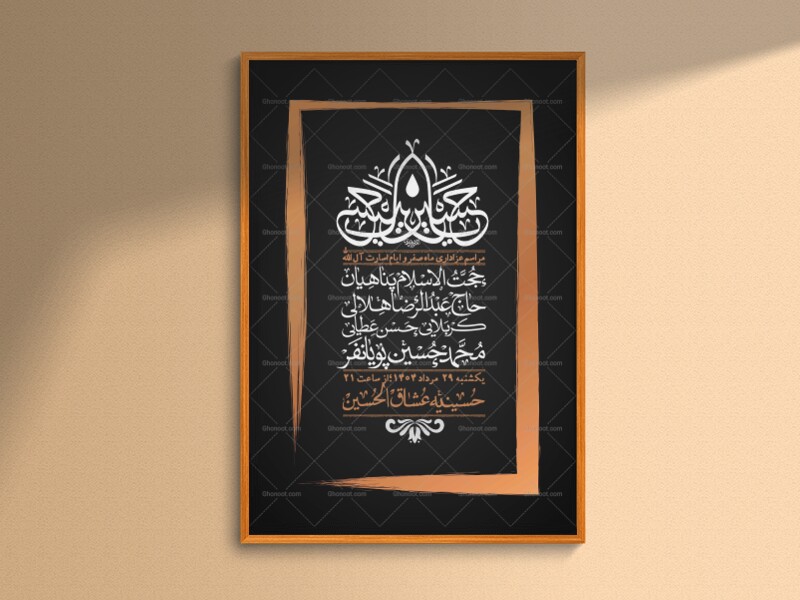 حسین حسین
مراسم عزاداری ماه صفر و ایام اسارت آل الله
حجت الاسلام پناهیان
حاج عبدالرضا هلالی
کربلایی حسن عطایی
محمدحسین پویانفر
یکشنبه ۲۹ مرداد ۱۴۰۴؛ از ساعت ۲۱
حسینیه عشاق الحسین
Ghonoot.com